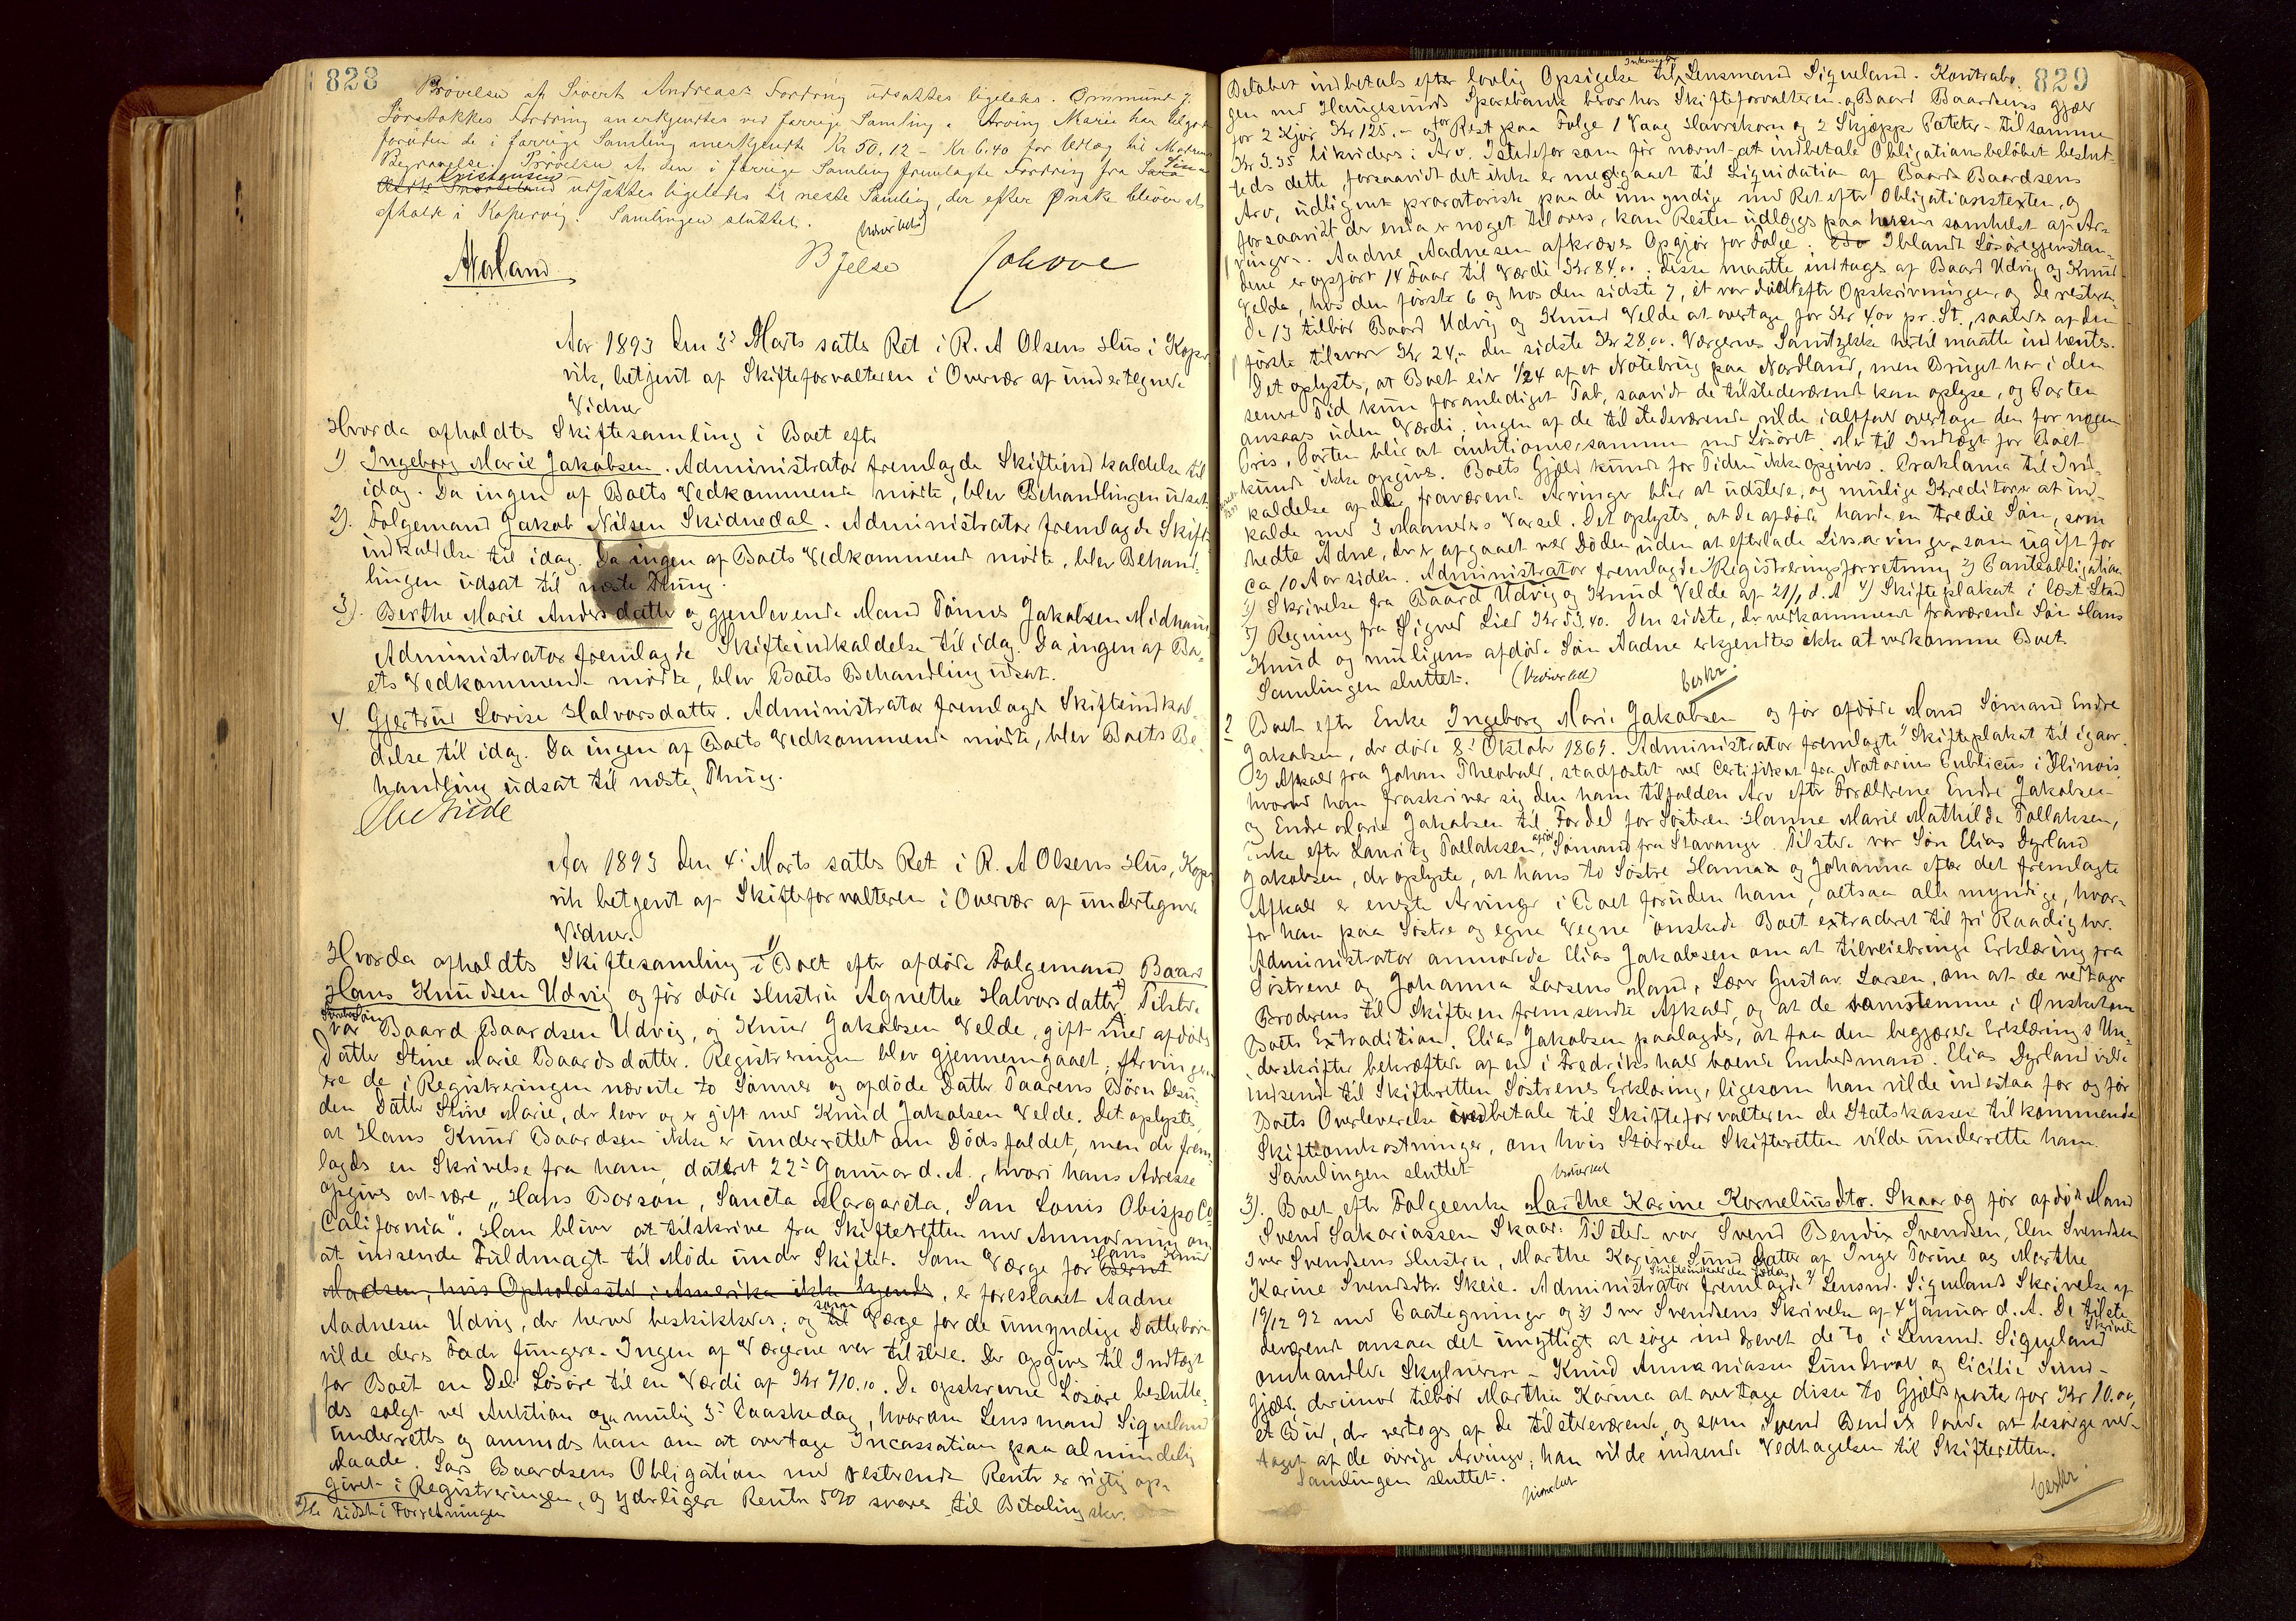 828
Prövelse af Sivert Andreas' Fordring udsattes ligeledes. Ommund J.
Sörstokkes Fordring anerkjendtes ved forrige Samling. Arving Marie har tilgode
foruden de i forrige Samling anerkjendte Kr 50.12 – Kr 6.40 for Udlæg til Moderens
Begravelse. Prövelse af den i forrige Samling fremlagte Fordring fra
Kristensen udsættes ligeledes til neste Samling, der efter Önske bliver at
afholde i Kopervig. Samlingen sluttet.
Aar 1893 den 3' Marts sattes Ret i R. A Olsens Hus i Koper
vik, betjent af Skifteforvalteren i Overvær af undertegnede
Vidner
Hvorda afholdtes Skiftesamling i Boet efter
1) Ingeborg Marie Jakobsen. Administrator fremlagde Skifteindkaldelse til
idag. Da ingen af Boets Vedkommende mödte, blev Behandlingen udsat
2). Folgemand Jakob Nilsen Skidnedal. Administrator fremlagde Skifte
indkaldelse til idag. Da ingen af Boets Vedkommende mödte, blev Behand-
lingen udsat til næste Thing.
3). Berthe Marie Andersdatter og gjenlevende Mand Tönnes Jakobsen Midhaug
Administrator fremlagde Skifteindkaldelse til idag. Da ingen af Bo-
ets Vedkommende mödte, blev Boets Behandling udsat.
4. Gjertrud Lovise Halvorsdatter. Administrator fremlagde Skifteindkal-
delse til idag. Da ingen af Boets Vedkommende mödte, blev Boets Be-
handling udsat til næste Thing.
Aar 1893 den 4' Marts sattes Ret i R. A Olsens Hus, Koper
vik betjent af Skifteforvalteren i Overvær af undertegnede
Vidner.
Hvorda afholdtes Skiftesamling 1) i Boet efter afdöde Folgemand Baard
Hans Knudsen Udvig og för döde Hustru Agnethe Halvorsdatter. Tilstede
var Baard Baardsen Udvig, og Knud Jakobsen Velde, gift med afdödes
Datter Stine Marie Baardsdatter. Registreringen blev gjennemgaaet; Arvinger
ere de i Registreringen nævnte to Sönner og afdöde Datter Taarens Börn desu-
den Datter Stine Marie, der lever og er gift med Knud Jakobsen Velde. Det oplystes,
at Hans Knud Baardsen ikke er underrettet om Dödsfaldet, men der frem-
lagdes en Skrivelse fra ham, dateret 22' Januar d. A., hvori hans Adresse
opgives at være „Hans Borson, Sancta Margareta, San Louis Obispo Co
California". Han bliver at tilskrive fra Skifteretten med Anmodning om
at indsende Fuldmagt til Möde under Skiftet. Som Værge for Hans Knud
Madsen, hvis Opholdssted i Amerika ikke kjendes, er foreslaaet Aadne
Aadnesen Udvig, der herved beskikkedes; og som Værge for de umyndige Datterbörn
vilde deres Fader fungere. Ingen af Værgerne var tilstede. Der opgives til Indtægt
for Boet en Del Lösöre til en Værdi af Kr 710.10. De opskrevne Lösöre beslutte-
des solgt ved Auktion om mulig 3' Paaskedag, hvorom Lensmand Siqueland
underrettes og anmodes han om at overtage Incassation paa almindelig
Maade. Lars Baardsens Obligation med resterende Renter er rigtig op-
givet i Registreringen, og yderligere Renter 5% svares til Betaling sker.
sidst i Forretningen
829
Belöbet indbetales efter lovlig Opsigelse til Lensmand Siqueland. Kontrabo-
gen med Haugesunds Sparebank beror hos Skifteforvalteren og Baard Baardsens gjæld
for 2 Kjör Kr 125.– og for Rest paa Folge 1 Vaag Havrekorn og 2 Skjæpper Poteter – tilsammen
Kr 3.35 likvideres i Arv. Istedetfor som för nævnt at indbetale Obligationsbelöbet beslut-
tedes dette, forsaavidt det ikke er medgaaet til Liquidation af Baard Baardsens
Arv, udlignet proratarisk paa de umyndige med Ret efter Obligationstexten, og
forsaavidt der enda er noget tilovers, kan Resten udlægges paa hvem somhelst af Ar-
vingerne. Aadne Aadnesen afkræves Opgjör for Folge. Iblandt Lösöregjenstan-
dene er opfört 14 Faar til Værdi Kr 84.00. Disse maatte indtages af Baard Udvig og Knud
Velde, hos den förste 6 og hos den sidste 7, et var dödt efter Opskrivningen, og de resteren-
de 13 tilböd Baard Udvig og Knud Velde at overtage for Kr 4.00 pr. St., saaledes af den
förste tilsvares Kr 24.– den sidste Kr 28.00. Værgernes Samtykke hertil maatte indhentes.
Det oplystes, at Boet eier 1/24 af et Notebrug paa Nordland, men Bruget har i den
senere Tid kun foranlediget Tab, saavidt de tilstedeværende kan oplyse, og Parten
ansaaes uden Værdi; ingen af de tilstedeværende vilde ialfald overtage den for nogen
Pris. Parten blir at auktionere sammen med Lösöret. Mer til Indtægt for Boet
kunde ikke opgives. Boets Gjæld kunde for Tiden ikke opgives. Proklama til Ind-
kaldelse af de fraværende Arvinger blir at udstede, og mulige Kreditorer at ind-
kalde med 3 Maaneders Varsel. Det oplystes, at de afdöde havde en tredie Sön, som
hedte Adne, der er afgaaet ved Döden uden at efterlade Livsarvinger, som ugift for
ca 10 Aar siden. Administrator fremlagde 1) Registreringsforretning 2) Panteobligation
3) Skrivelse fra Baard Udvig og Knud Velde af 21/1 d. A 4) Skifteplakat i læst Stand
5) Regning fra Sigved Lied Kr 53.40. Den sidste, der vedkommer fraværende Sön Hans
Knud og muligens afdöde Sön Aadne erkjendtes ikke at vedkomme Boet.
Samlingen sluttet.
2 Boet efter Enke Ingeborg Marie Jakobsen og för afdöde Mand Sömand Endre
Jakobsen, der döde 8' Oktober 1869. Administrator fremlagte 1) Skifteplakat til igaar.
2) Afkald fra Johan Theobald, stadfæstet ved Certifikat fra Notarius Publicus i Illinois,
hvorved han fraskriver sig den ham tilfalden Arv efter Forældrene Endre Jakobsen
og Endre Marie Jakobsen til Fordel for Sösteren Hanne Marie Mathilde Tollaksen,
Enke efter Lauritz Tollaksen, Sömand fra Stavanger. Tilstede var Sön Elias Dyrland
Jakobsen, der oplyste, at hans to Söstre Hanna og Johanna efter det fremlagte
Afkald er eneste Arvinger i Boet foruden ham, altsaa alle myndige, hvor-
for han paa Söstres og egne Vegne önskede Boet extraderet til fri Raadighed.
Administrator anmodede Elias Jakobsen om at tilveiebringe Erklæring fra
Söstrene og Johanna Larsens Mand, Lærer Gustav Larsen, om at de vedtager
Broderens til Skifteren fremsendte Afkald, og at de samstemme i Önsket om
Boets Extradition. Elias Jakobsen paalagdes, at faa den begjærede Erklærings Un-
derskrifter bekræftede af en i Fredrikshald boende Embedsmand. Elias Dyrland vilde
indsende til Skifteretten Söstrenes Erklæring, ligesom han vilde indestaa for og för
Boets Overleverelse indbetale til Skifteforvalteren de Statskassen tilkommende
Skifteomkostninger, om hvis Störrelse Skifteretten vilde underrette ham.
Samlingen sluttet
3). Boet efter Folgeenke Marthe Karine Korneliusdtr. Skaar og för afdöde Mand
Svend Sakariassen Skaar. Tilstede var Svend Bendix Svendsen, Elen Svendsen
Iver Svendsens Hustru, Marthe Karine Sund Datter af Inger Torine og Marthe
Karine Svendsdtr. Skeie. Administrator fremlagde 2) Lensmd. Siquelands Skrivelse af
19/12 92 med Paategninger og 3) Iver Svendsens Skrivelse af 4 Januar d. A. De tilste-
deværende ansaa det unyttigt at söge inddrevet de to i Lensmd. Siqueland Skrivelse
omhandlede Skyldnere – Knud Annaniassen Lundevol og Cicilie Sund –
Gjæld. derimod tilböd Marthe Karina at overtage disse to Gjældsposter for Kr 10.00,
et Bud, der vertoges af de tilstedeværende, og som Svend Bendix lovede at besörge ved-
taget af de övrige Arvinger; han vilde indsende Vedtagelsen til Skifteretten.
Samlingen sluttet.